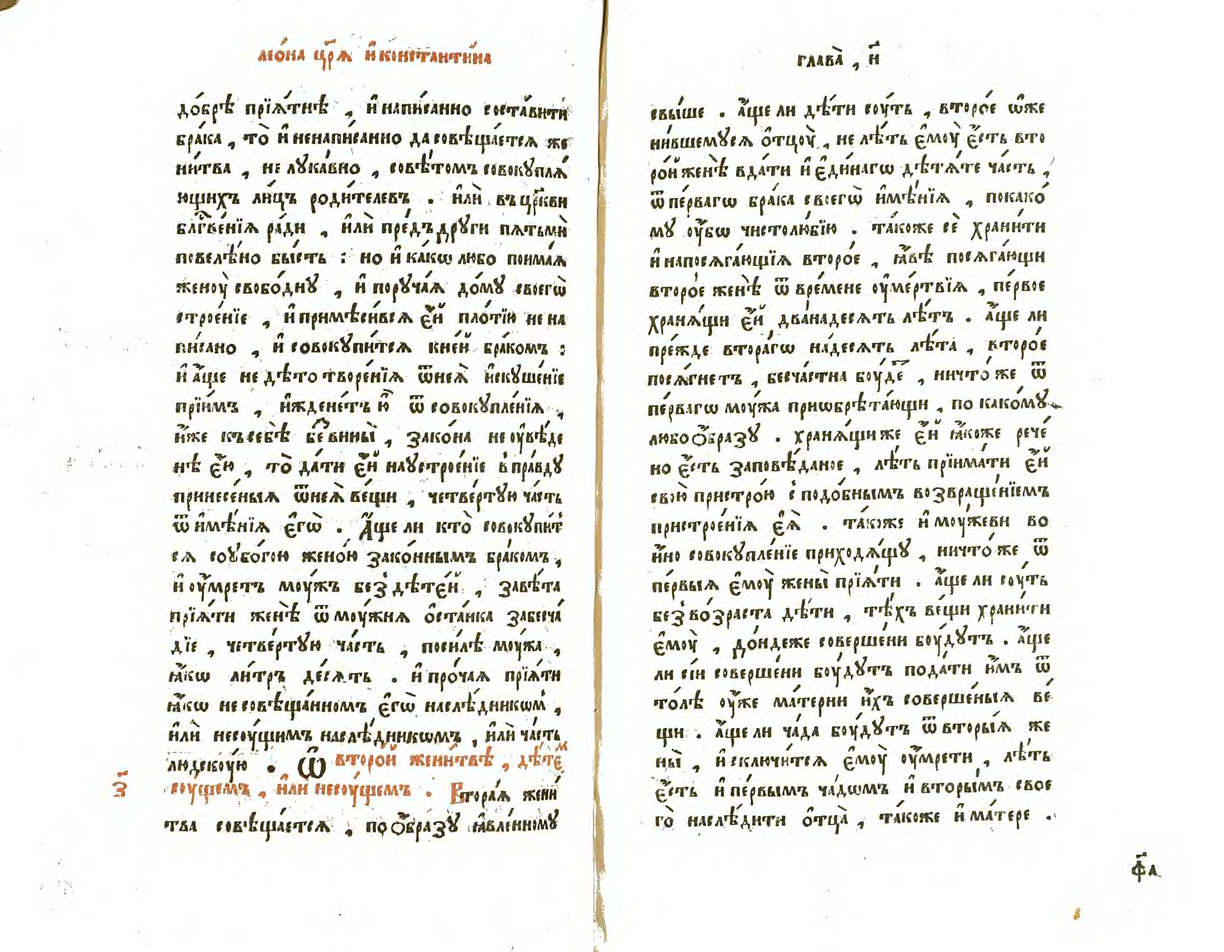 леѡ́на цр҃ѧ и҆ константи́на
до́брѣ прїѧ́тнѣ , и҆ написанно соста́вити
бра́ка , то̀ и҆ ненапи́санно да совѣща́етсѧ же
ни́тва , не лука́вно , совѣ́томъ совокуплѧ́
ющихъ ли́цъ роди́телевъ . и҆лѝ въ цр҃кви
бл҃гве́нїѧ ра́ди , и҆лѝ пред̾ дру́ги пѧтьмѝ
повелѣ́но бы́сть : но и҆ ка́кѡ лю́бо поима́ѧ
женоу̀ свобо́дну , и҆ пору́чаѧ до́му своегѡ̀
строе́нїе , и҆ примѣси́всѧ е҆́й пло́тїю не на
пи́сано , и҆ совоку́питсѧ кне́й бра́комъ :
и҆ а҆́ще не дѣ́тотворе́нїѧ ѿ неѧ̀ и҆скуше́нїе
прїи́мъ , и҆жденетъ ю҆̀ ѿ совокупле́нїѧ ,
и҆́же къ себѣ̀ бе винн̀ы , зако́на не оувѣде
нѣ е҆́ю , то̀ да́ти е҆́й на устрое́нїе вправду
принесе́ныѧ ѿ неѧ̀ ве́щи , четве́ртую ча́сть
ѿ и҆мѣ́нїѧ е҆гѡ̀ . А҆́ще ли кто̀ совоку́пит
сѧ соубо́гою жено́ю зако́ннымъ бра́комъ ,
и҆ оу҆́мретъ моу́жъ без̾ дѣте́й , завѣ́та
прїѧ́ти женѣ̀ ѿ моу́жнѧ ѻ҆ста́нка забесча́
дїе , четве́ртую ча́сть , поси́лѣ моу́жа ,
ꙗ҆́кѡ ли́тръ де́сѧть . и҆ про́чаѧ прїѧ́ти
ꙗ҆́кѡ не совѣща́нном е҆гѡ̀ наслѣ́дникѡм ,
и҆лѝ несоу́щимъ наслѣ́дникѡмъ , и҆лѝ ча́сть
людскоую . Ѿ второ́й жени́твѣ , дѣ́те м
з҃
соущемъ , и҆лѝ несоу́щемъ . Втораѧ жени
тва совѣща́етсѧ , по о҆́бразу ꙗ҆вле́нному
глава̀ , и҃
свы́ше . а҆́ще ли дѣ́ти соу́ть , второ́е ѡ҆же
ни́вшемусѧ ѻ҆тцоу̀ , не лѣ́ть е҆моу̀ е҆́сть вто
ро́й женѣ̀ вда́ти и҆ е҆ди́нагѡ дѣ́тѧте ча́сть ,
ѿ пе́рвагѡ бра́ка своегѡ̀ и҆мѣ́нїѧ , по како́
му оу҆́бѡ чистолю́бїю . та́коже сѐ храни́ти
и҆ напосѧга́ющїѧ второ́е , ꙗ҆́вѣ посѧга́ющи
второ́е женѣ̀ ѿ вре́мене оу҆ме́ртвїѧ , пе́рвое
хранѧ́щи е҆́й двана́десѧть лѣ́тъ . а҆́ще ли
пре́жде втора́гѡ на́десѧть лѣ́та , второ́е
посѧ́гнетъ , бесча́стна боу́де , ничто́же ѿ
пе́рвагѡ моу́жа приѡбрѣта́ющи , по како́му
любо о҆́бразу . хранѧ́щи же е҆́й ꙗ҆́коже рече́
но е҆́сть запове́даное , лѣ́ть прїима́ти е҆́й
свою̀ пристро́ю с подо́бнымъ возвраще́нїемъ
пристрое́нїѧ е҆ѧ̀ . та́коже и҆ моу́жеви во
и҆́но совокупле́нїе приходѧ́щу , ничто́же ѿ
пе́рвыѧ е҆моу̀ жены̀ прїѧ́ти . а҆́ще ли соу́ть
без̾ во́зраста дѣ́ти , тѣ́хъ ве́щи храни́ти
е҆моу̀ , до́ндеже соверше́ни боу́дутъ . а҆́ще
ли сїѝ соверше́ни боу́дутъ пода́ти и҆́мъ ѿ
то́лѣ оу҆́же ма́терни и҆́хъ соверше́ныѧ ве́
щи . а҆́ще ли ча́да боу́дутъ ѿ вторы́ѧ же
ны̀ , и҆ сключи́тсѧ е҆моу̀ оу҆мре́ти , лѣ́ть
е҆́сть и҆ пе́рвымъ ча́дѡмъ и҆ вторы́мъ свое
го̀ наслѣ́дити ѻ҆тца̀ , та́коже и҆ ма́тере .
ф҃а